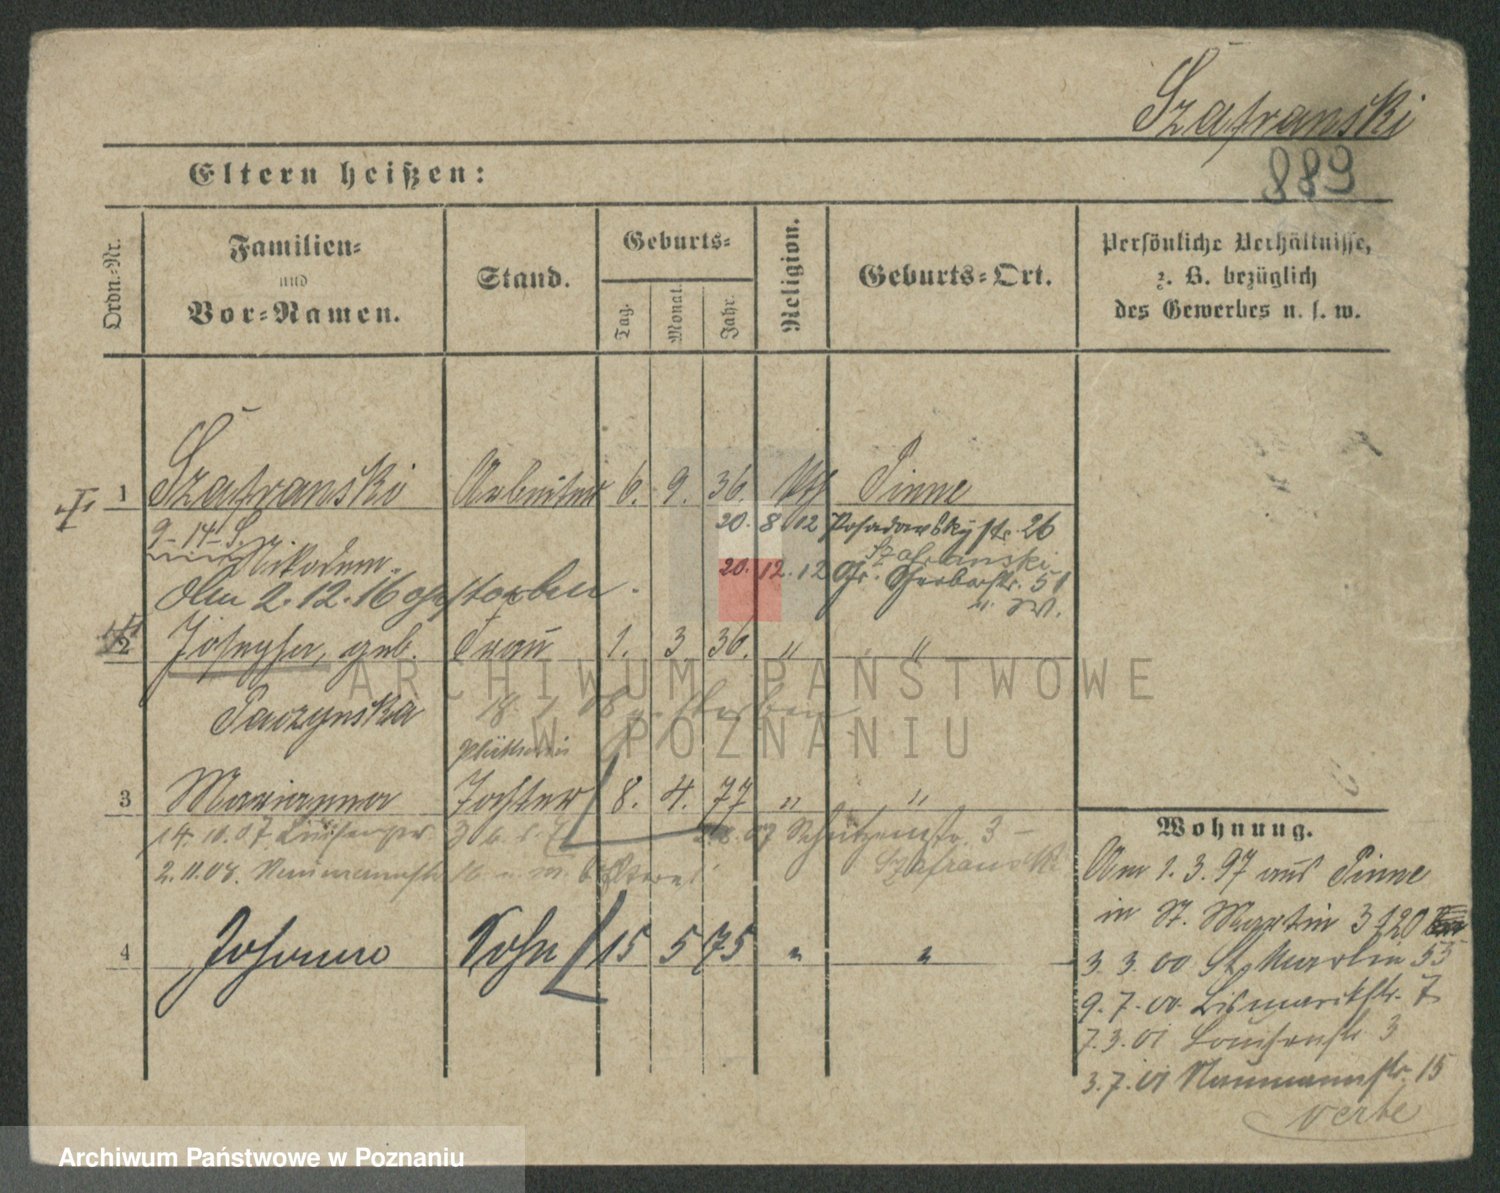 Szafranski
889
Eltern heißen:
Ordn.-Nr.
Familien-
und
Vor-Namen.
Stand.
Geburts-
Tag.
Monat.
Jahr.
Religion.
Geburts-Ort.
Persönliche Verhältnisse,
z. B. bezüglich
des Gewerbes u. s. w.
I
1 Szafranski Arbeiter 6. 9. 36. kth Pinne
9-14-S.
20. 8 12 Posadowskystr. 26
Nikodem
Szafranski
20. 12. 12 Gr. Gerberstr. 51
Am 2.12.16 gestorben.
2 Josepha, geb. Frau 1. 3 36. " "
Paczynska
18 08 gestorben
Plätterin
3 Marianna Tochter 8. 4. 77 " "
14.10.07 3 07 Schützenstr. 3 -
2.11.08. Naumannstr b. Eltern
Szafranski
4 Johann Sohn 15 5 75 " "
Wohnung.
Am 1.3.97 aus Pinne
in St. Martin 3 120
3. 3. 00 St. Martin 53
9. 7. 00. Bismarckstr. 7
7.3.01 Louisenstr 3
3.7.01 Naumannstr. 15
verte
ARCHIWUM PAŃSTWOWE
W POZNANIU
Archiwum Państwowe w Poznaniu